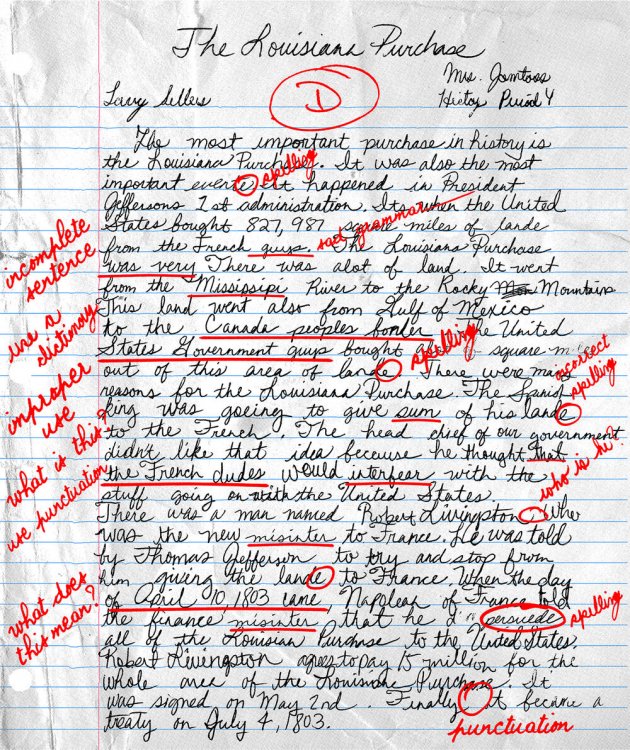 The Louisiana Purchase
Mrs. Jamtoss
Larry Sellers
D
History Period 4
The most important purchase in history is
the Louisiana Purchase. It was also the most
spelling
important evente It happened in President
Jeffersons 1st administration. Its when the United
States bought 827,987 square miles of lande
grammar
from the French guys. The Louisiana Purchase
incomplete
sentence
was very There was alot of land. It went
from the Missisipi River to the Rocky Mountains
This land went also from Gulf of Mexico
use a
dictionary
to the Canada peoples border The United
spelling
States Government guys bought square
incorrect
spelling
out of this area of lande There were many
reasons for the Louisiana Purchase. The Spanish
improper
use
King was goeing to give sum of his lande
to the French. The head chief of our government
what is this?
didn't like that idea because he thought that
who is he?
the French dudes would interfear with the
use punctuation
stuff going on with the United States.
There was a man named Robert Livingston, who
was the new misinter to France. He was told
by Thomas Jefferson to try and stop from
him giving the lande to France. When the day
what does
this mean?
of April 10, 1803 came, Napolean of France told
the finance misinter that he persuede
spelling
all of the Louisian Purchase to the United States.
Robert Livingston agres to pay 15 million for the
whole area of the Louisiana Purchase. It
was signed on May 2nd. Finally it became a
treaty on July 4, 1803.
punctuation